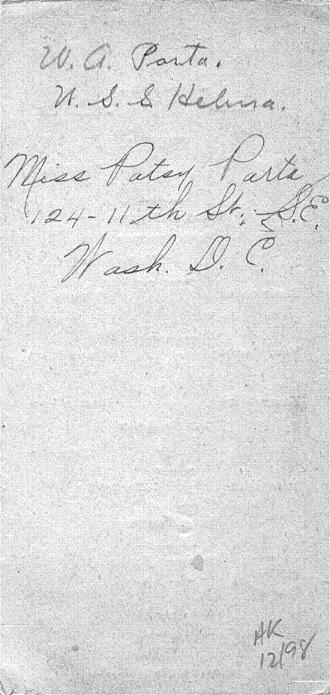 W. A. Porta.
U. S. S. Helena.
Miss Patsy Parta
124-11th St., S.E.
Wash. D. C.
AK
12/98